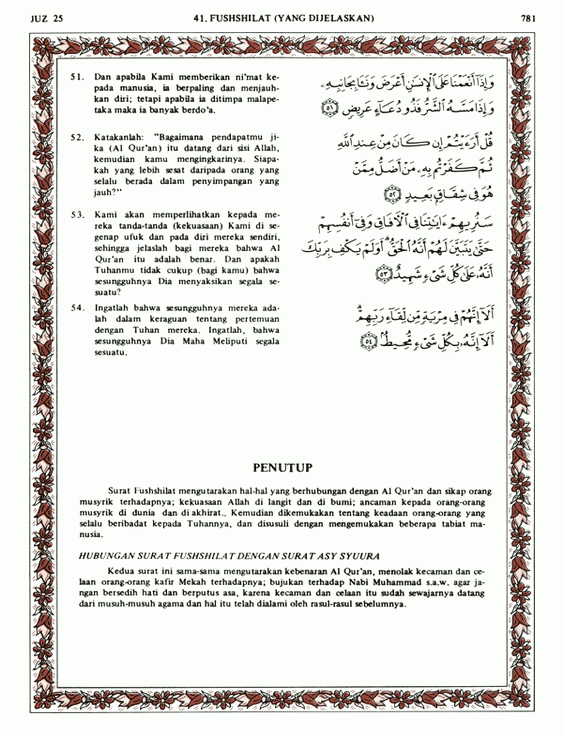 JUZ 25 41. FUSHSHILAT (YANG DIJELASKAN) 781
51. Dan apabila Kami memberikan ni'mat ke-
pada manusia, ia berpaling dan menjauh-
kan diri; tetapi apabila ia ditimpa malape-
taka maka ia banyak berdo'a.
وَإِذَآ أَنْعَمْنَا عَلَى ٱلْإِنسَٰنِ أَعْرَضَ وَنَـَٔا بِجَانِبِهِۦ
وَإِذَا مَسَّهُ ٱلشَّرُّ فَذُو دُعَآءٍ عَرِيضٍ ﴿٥١﴾
52. Katakanlah: "Bagaimana pendapatmu ji-
ka (Al Qur'an) itu datang dari sisi Allah,
kemudian kamu mengingkarinya. Siapa-
kah yang lebih sesat daripada orang yang
selalu berada dalam penyimpangan yang
jauh?"
قُلْ أَرَءَيْتُمْ إِن كَانَ مِنْ عِندِ ٱللَّهِ
ثُمَّ كَفَرْتُم بِهِۦ مَنْ أَضَلُّ مِمَّنْ
هُوَ فِى شِقَاقٍۭ بَعِيدٍ ﴿٥٢﴾
53. Kami akan memperlihatkan kepada me-
reka tanda-tanda (kekuasaan) Kami di se-
genap ufuk dan pada diri mereka sendiri,
sehingga jelaslah bagi mereka bahwa Al
Qur'an itu adalah benar. Dan apakah
Tuhanmu tidak cukup (bagi kamu) bahwa
sesungguhnya Dia menyaksikan segala se-
suatu?
سَنُرِيهِمْ ءَايَٰتِنَا فِى ٱلْءَافَاقِ وَفِىٓ أَنفُسِهِمْ
حَتَّىٰ يَتَبَيَّنَ لَهُمْ أَنَّهُ ٱلْحَقُّ أَوَلَمْ يَكْفِ بِرَبِّكَ
أَنَّهُۥ عَلَىٰ كُلِّ شَىْءٍ شَهِيدٌ ﴿٥٣﴾
54. Ingatlah bahwa sesungguhnya mereka ada-
lah dalam keraguan tentang pertemuan
dengan Tuhan mereka. Ingatlah, bahwa
sesungguhnya Dia Maha Meliputi segala
sesuatu.
أَلَآ إِنَّهُمْ فِى مِرْيَةٍ مِّن لِّقَآءِ رَبِّهِمْ
أَلَآ إِنَّهُۥ بِكُلِّ شَىْءٍ مُّحِيطٌۢ ﴿٥٤﴾
PENUTUP
Surat Fushshilat mengutarakan hal-hal yang berhubungan dengan Al Qur'an dan sikap orang
musyrik terhadapnya; kekuasaan Allah di langit dan di bumi; ancaman kepada orang-orang
musyrik di dunia dan di akhirat., Kemudian dikemukakan tentang keadaan orang-orang yang
selalu beribadat kepada Tuhannya, dan disusuli dengan mengemukakan beberapa tabiat ma-
nusia.
HUBUNGAN SURAT FUSHSHILAT DENGAN SURAT ASY SYUURA
Kedua surat ini sama-sama mengutarakan kebenaran Al Qur'an, menolak kecaman dan ce-
laan orang-orang kafir Mekah terhadapnya; bujukan terhadap Nabi Muhammad s.a.w. agar ja-
ngan bersedih hati dan berputus asa, karena kecaman dan celaan itu sudah sewajarnya datang
dari musuh-musuh agama dan hal itu telah dialami oleh rasul-rasul sebelumnya.